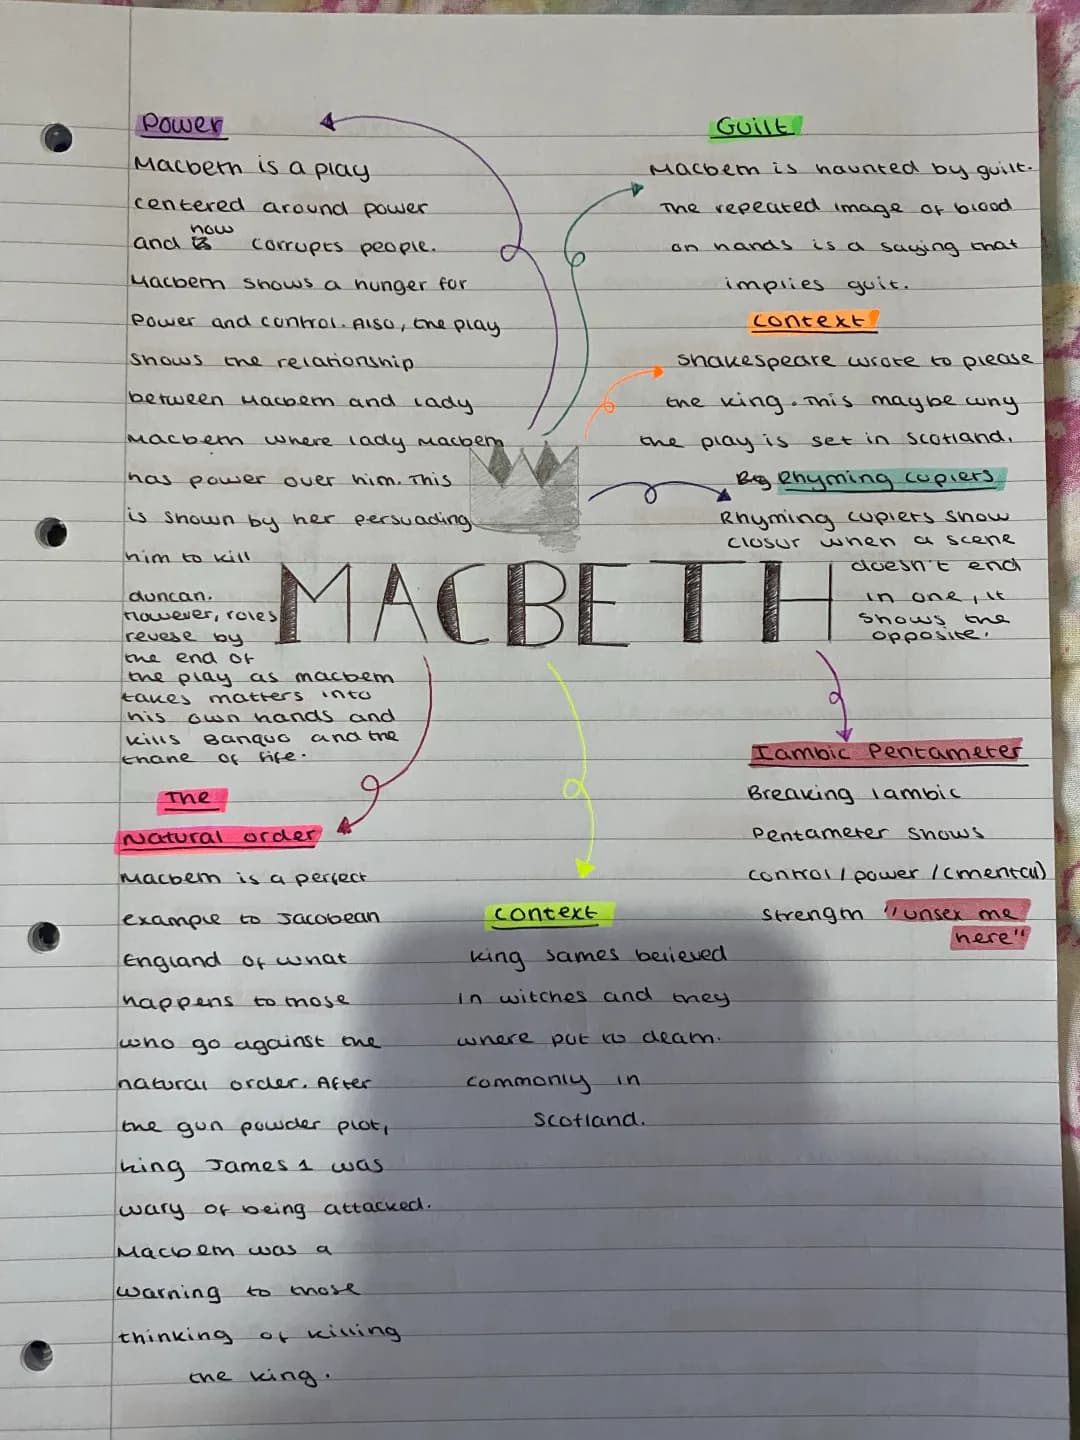 Power
Macbeth is a play
centered around power
and how corrupts people.
Macbeth shows a hunger for
power and control. Also, the play
shows the relationship
between Macbeth and Lady
Macbeth where lady Macbeth
has power over him. This
is shown by her persuading
him to kill
duncan.
however, roles
revese by
the end of
the play as macbeth
takes matters into
his own hands and
kills Banquo and the
thane of fife.
The
Natural order
Macbeth is a perfect
example to Jacobean
England of what
happens to those
who go against the
natural order. After
the gun powder plot,
king James 1 was
wary of being attacked.
Macbeth was a
warning to those
thinking of killing
the king.
MACBETH
Guilt
Macbeth is haunted by guilt.
The repeated image of blood
on hands is a saying that
implies guilt.
context
Shakespeare wrote to please
the king. This maybe why
the play is set in Scotland.
Rhyming cuplers
Rhyming cuplers show
closur when a scene
doesn't end
in one, it
shows the
opposite.
Iambic Pentameter
Breaking iambic
Pentameter shows
control / power / (mental)
strength "unsex me
here"
context
king James believed
in witches and they
where put to death.
commonly in
Scotland.